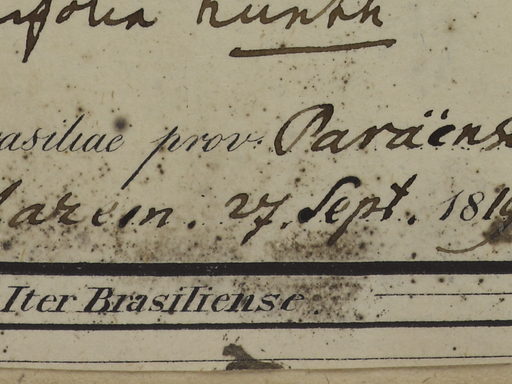 ifolia Kunth
rasiliae prov. Paraëns
tarem. 27. Sept. 1819
Iter Brasiliense.